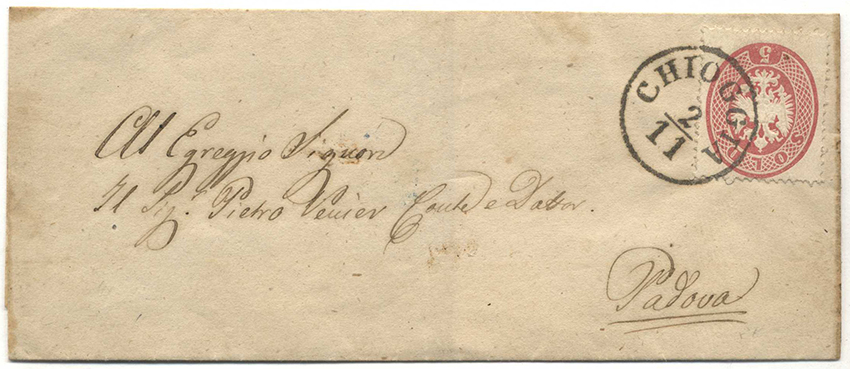 CHIOGGIA
2/11
5 SOLDI
All Egreggio Signore
Il Sig.r Pietro Venier Conte e Dottor.
Padova